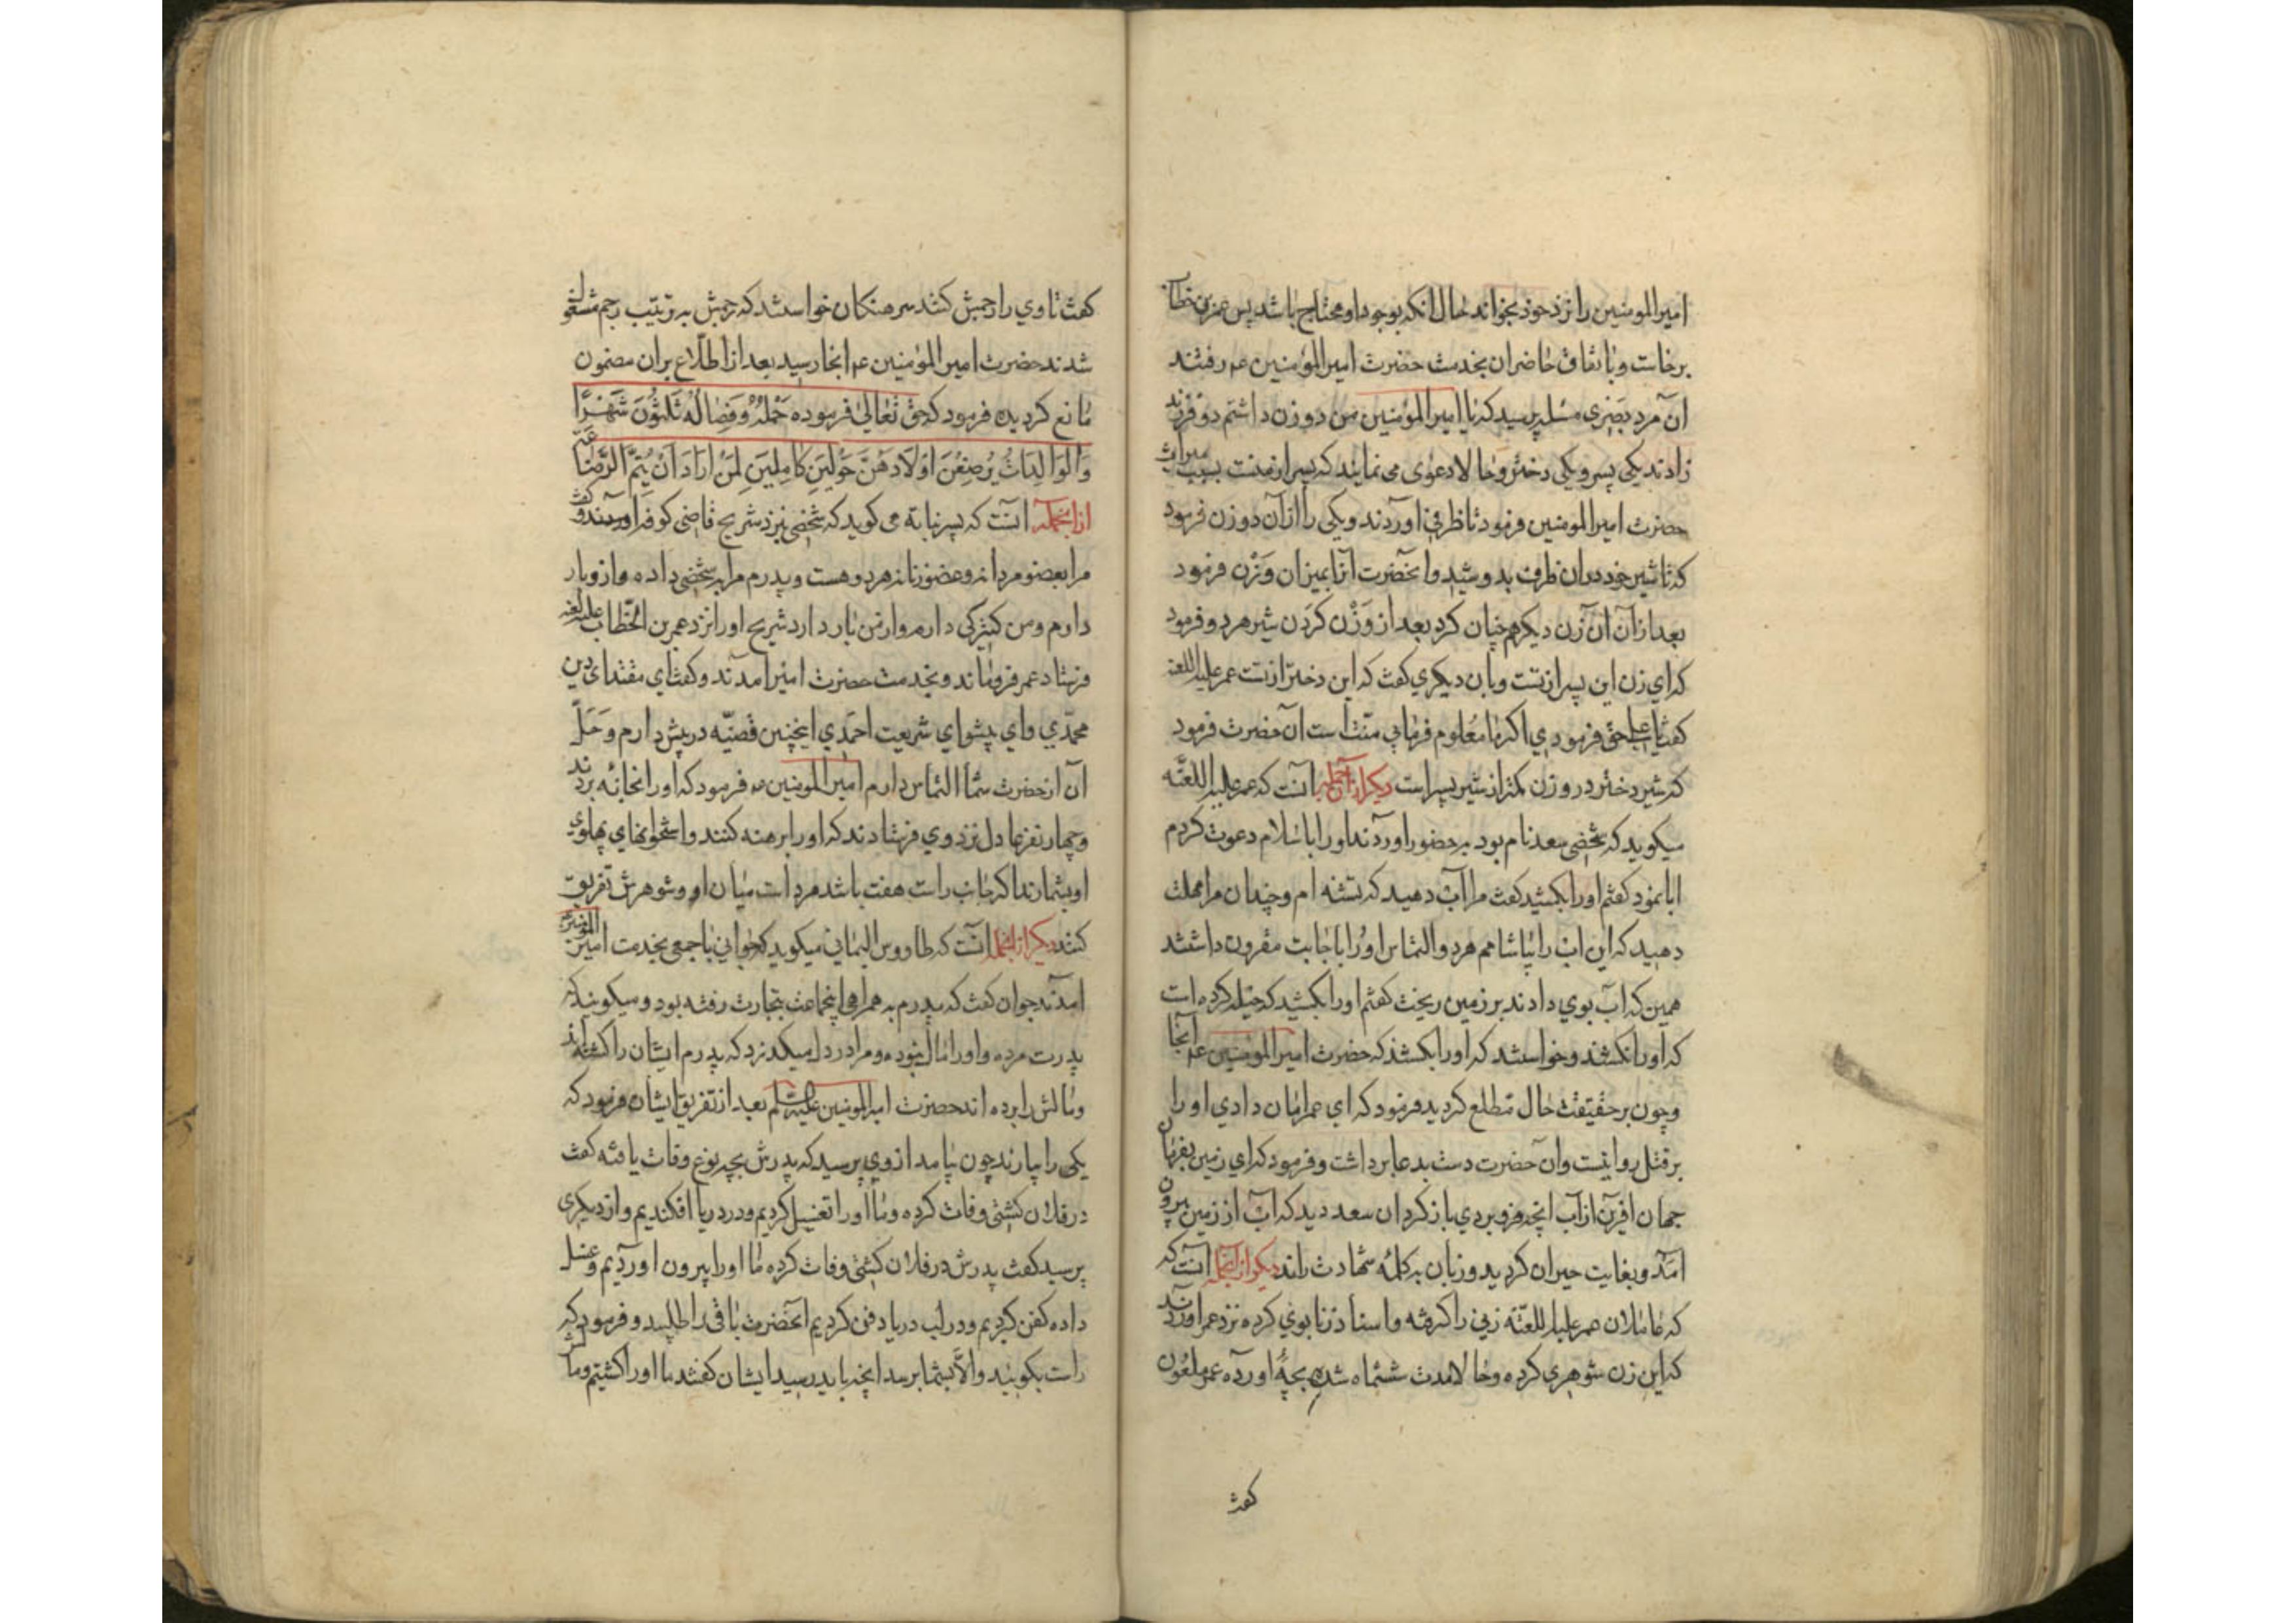 امیرالمومنین را نزد خود بخواند حال انکه بوجود او محتاج باشد پس عمر بن خطاب
برخاست و باتفاق حاضران بخدمت حضرت امیرالمؤمنین عم رفتند
ان مرد بصری مسله پرسید که یا امیرالمؤمنین من دو زن داشتم دو فرزند
زادند یکی پسر و یکی دختر و حالا دعوی می نمایند که پسر از منست بسبب میراث
حضرت امیرالمومنین فرمود تا ظرفی اوردند و یکی را از آن دو زن فرمود
که تا شیر خود در ان ظرف بدوشید و انحضرت آنرا بمیزان وزن فرمود
بعد از آن آن زن دیکر هم چنان کرد بعد از وَزْن کردن شیر هر دو فرمود
که ای زن این پسر از تست و بان دیکری کفت که این دختر از تست عمر علیه اللعنه
کفت یا علی حق فرمودی اکر ما را معلوم فرمایی منت است آن حضرت فرمود
که شیر دختر در وزن کمتر از شیر پسر است دیکر از آنجمله آنست که عمر علیه اللعنّه
میکوید که شخصی سعد نام بود بر حضور اوردند او را باسلام دعوت کردم
ابا نمود کفتم او را بکشید کفت مرا آب دهید که تشنه ام و چندان مرا مهلت
دهید که این اب را بیاشامم هر دو التماس او را باجابت مقرون داشتند
همین که اب بوی دادند بر زمین ریخت کفتم او را بکشید که حیله کرده است
که او را نکشند و خواستند که او را بکشند که حضرت امیرالمومنین عم آنجا
و چون بر حقیقت حال مطلع کردید فرمود که ای عمر امان دادی او را
بر قتل روا نیست و ان حضرت دست بدعا برداشت و فرمود که ای زمین بفرمان
جهان افرین از آب انچه فرو بردی باز کردان سعد دید که آب از زمین بیرون
امد و بغایت حیران کردید و زبان به کلمه شهادت راند دیکر از آنجمله آنست که
که عاملان عمر علیه اللعنّه زنی را کرفته و اسناد زنا بوی کرده نزد عمر اوردند
که این زن شوهری کرده و حالا مدت ششماه شده بچهٔ اورده عمر ملعون
کفت
کفت تا وی را رجمش کنند سرهنکان خواستند که رجمش به ترتیب رجم مشغول
شدند حضرت امیرالمؤمنین عم انجا رسید بعد از اطلاع بران مضمون
مانع کردیده فرمود که حق تعالی فرموده حَمْلُهُ وَفِصَالُهُ ثَلثُونَ شَهْرًا
وَالْوَالِدَاتُ یُرْضِعْنَ اَوْلَادَهُنَّ حَوْلَیْنِ کَامِلَیْنِ لِمَنْ اَرَادَ اَنْ یُتِمَّ الرَّضَاعَةَ
از آنجمله آنست که پسر نباته می کوید که شخصی نزد شریح قاضی کوفه اوردند و کفت
مرا بعضو مردانه و عضو زنانه هر دو هست و پدرم مرا بر شخصی داده و از وی بار
دارم و من کنیزکی دارم و از من بار دارد شریح او را نزد عمر بن الخطاب علیه اللعنه
فرستاد عمر فروماند و بخدمت حضرت امیر آمدند و کفت ای مقتدای دین
محمّدی و ای پیشوای شریعت احمدی اینچنین قضیّه در پیش دارم و حَلّ
آن از حضرت شما التماس دارم امیرالمومنین عم فرمود که او را بخانه بردند
و چهار نفر عادل نزد وی فرستادند که او را برهنه کنند و استخوانهای پهلوی
او بشمارند اکر جانب راست هفت باشد مرد است میان او و شوهرش تفریق
کنند دیکر از آنجمله آنست که طاووس الیمانی میکوید که جوانی با جمعی بخدمت امیرالمؤمنین
امدند جوان کفت که پدرم به همراهی اینجماعت بتجارت رفته بود و میکویند که
پدرت مرده و او را مال نبوده و مرا در دل میکذرد که پدرم ایشان را کشته‌اند
و مالش را برده اند حضرت امیرالمومنین علیه السلم بعد از تفریق ایشان فرمود که
یکی را بیارند چون بیامد از وی پرسید که پدرش بچه نوع وفات یافته کفت
در فلان کشتی وفات کرده و ما او را تغسیل کردیم و در دریا افکندیم و از دیکری
پرسید کفت پدرش در فلان کشتی وفات کرده ما او را بیرون اوردیم و غسل
داده کفن کردیم و در لب دریا دفن کردیم انحضرت باقی را طلبید و فرمود که
راست بکویید و الّا بشما برسد انچه باید رسید ایشان کفتند ما او را کشتیم و مالش